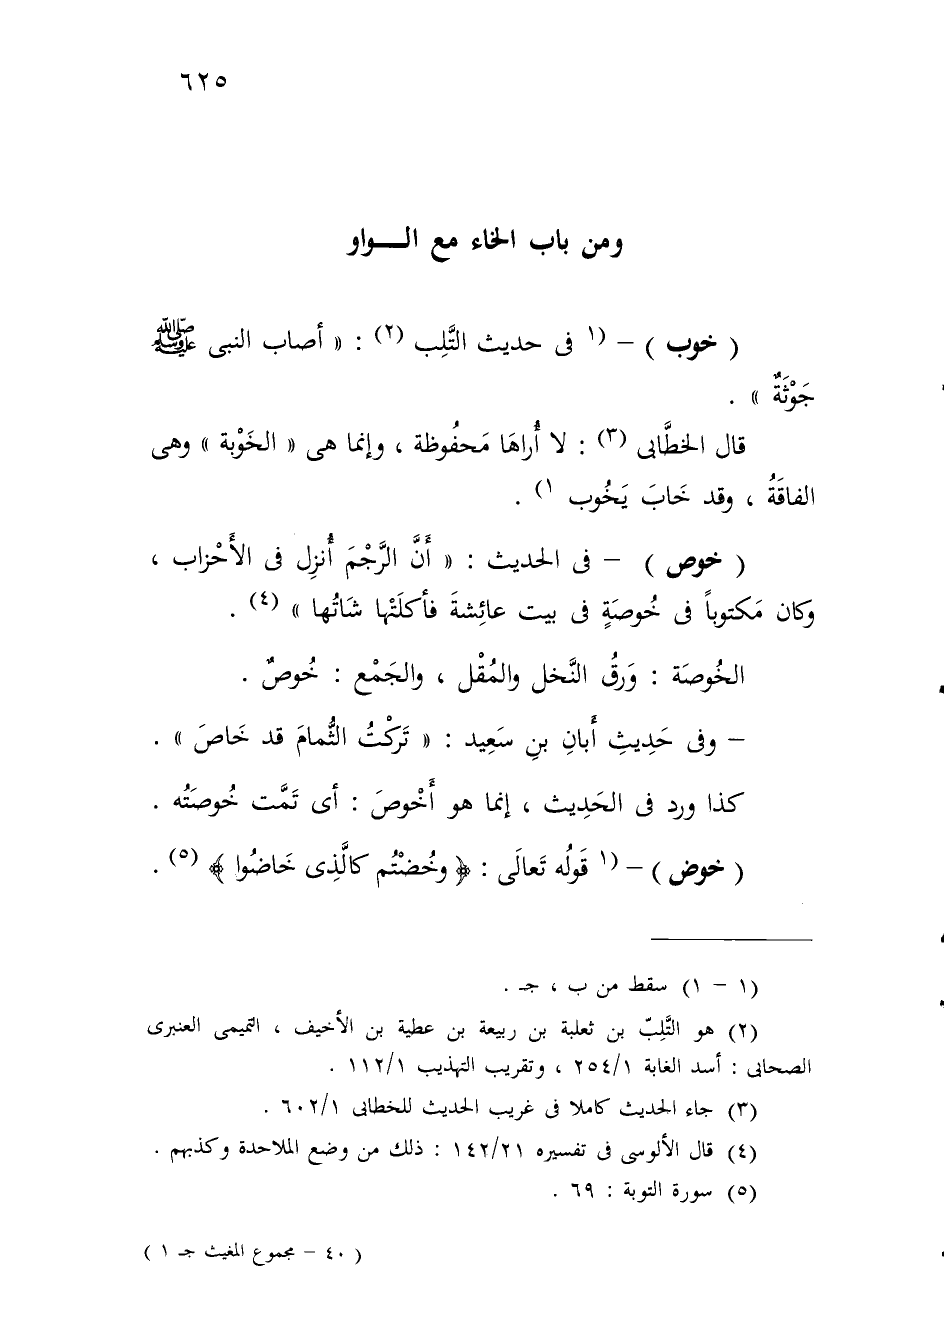 ٦٢٥
ومن باب الخاء مع الـــواو
( خوب ) – (١ فى حديث التَّلِب (٢) : « أصاب النبى ﷺ
جَوْثَةٌ » .
قال الخطَّابى (٣) : لا أُراهَا مَحفُوظة ، وإنما هى « الخَوْبة » وهى
الفاقَةُ ، وقد خَابَ يَخُوب ١) .
( خوص ) – فى الحديث : « أَنَّ الرَّجْمَ أُنزِل فى الأَحْزاب ،
وكان مَكتوباً فى خُوصَةٍ فى بيت عائِشةَ فأكلَتْها شَاتُها » (٤) .
الخُوصَة : وَرَقُ النَّخل والمُقْل ، والجَمْع : خُوصٌ .
– وفى حَدِيثِ أَبانِ بنِ سَعِيد : « تَرَكْتُ الثُّمامَ قد خَاصَ » .
كذا ورد فى الحَدِيث ، إنما هو أَخْوصَ : أى تَمَّت خُوصَتُه .
( خوض ) – (١ قَولُه تَعالَى : ﴿ وخُضْتُم كالَّذِى خَاضُوا ﴾ (٥) .
(١ – ١) سقط من ب ، جـ .
(٢) هو التَّلِبّ بن ثعلبة بن ربيعة بن عطية بن الأخيف ، التميمى العنبرى
الصحابى : أسد الغابة ٢٥٤/١ ، وتقريب التهذيب ١١٢/١ .
(٣) جاء الحديث كاملا فى غريب الحديث للخطابى ٦٠٢/١ .
(٤) قال الألوسى فى تفسيره ١٤٢/٢١ : ذلك من وضع الملاحدة وكذبهم .
(٥) سورة التوبة : ٦٩ .
( ٤٠ – مجموع المغيث جـ ١ )